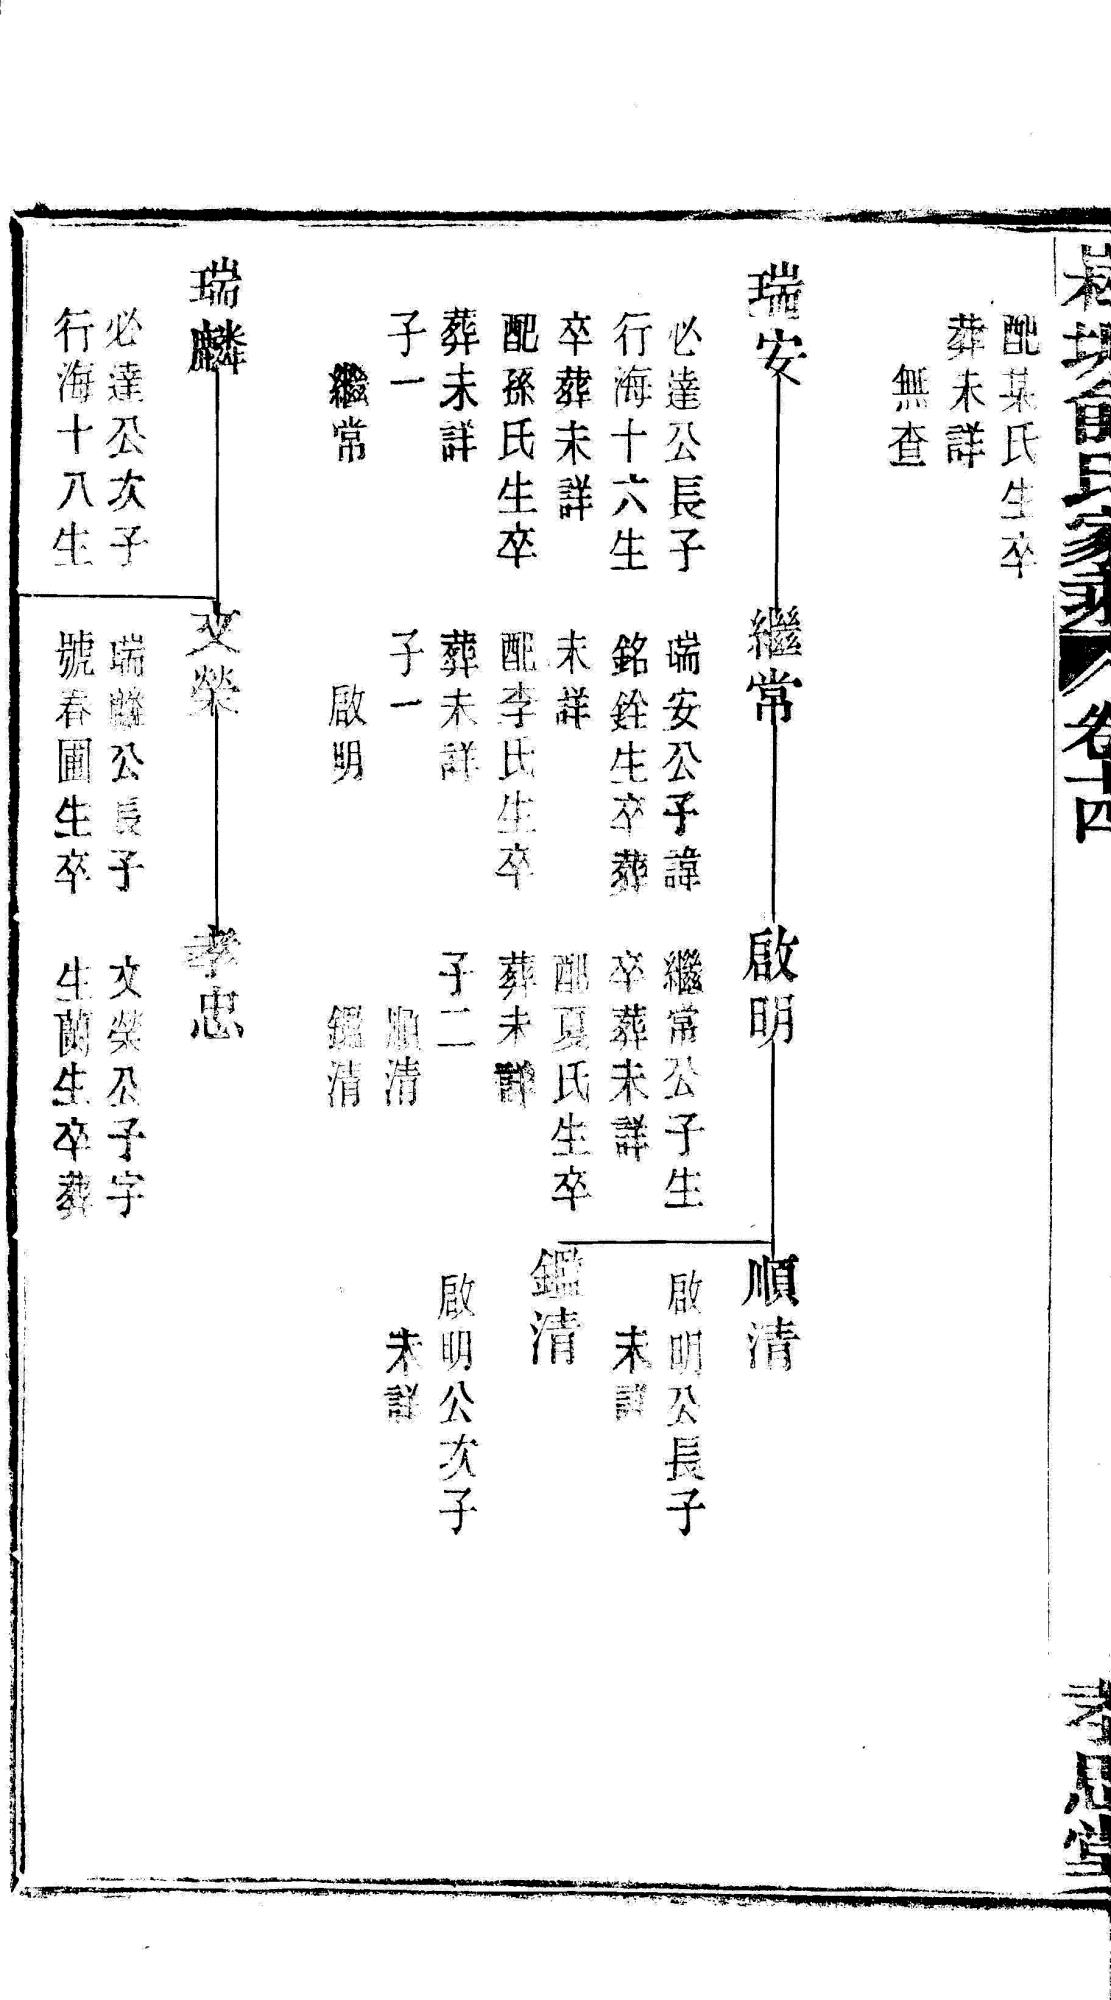 俞氏家乘
卷十四
孝思堂
配某氏生卒
葬未詳
無查
瑞安
必達公長子
行海十六生
卒葬未詳
配孫氏生卒
葬未詳
子一
繼常
繼常
瑞安公子諱
銘銓生卒葬
未詳
配李氏生卒
葬未詳
子一
啟明
啟明
繼常公子生
卒葬未詳
配夏氏生卒
葬未詳
子二
順清
鑑清
順清
啟明公長子
未詳
鑑清
啟明公次子
未詳
瑞麟
必達公次子
行海十八生
文榮
瑞麟公長子
號春圃生卒
孝忠
文榮公子字
生蘭生卒葬